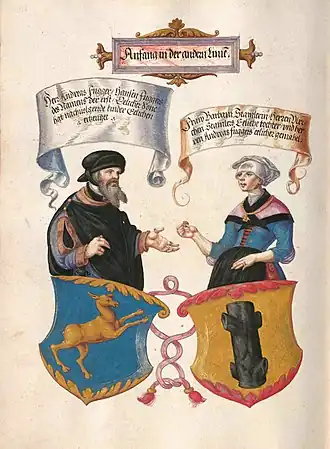 Anfang in der andern Linie.
Her Andreas Fugger, Hansen Fuggers
des Namens der erst Eelicher Sone
hat nachvolgende kinder Eelichen
erzeuget.
Fraw Barbara Stamlerin Herren Ulri-
chen Stamlers Eeliche tochter, und Her-
ren Andreas fuggers eelicher gemahel.